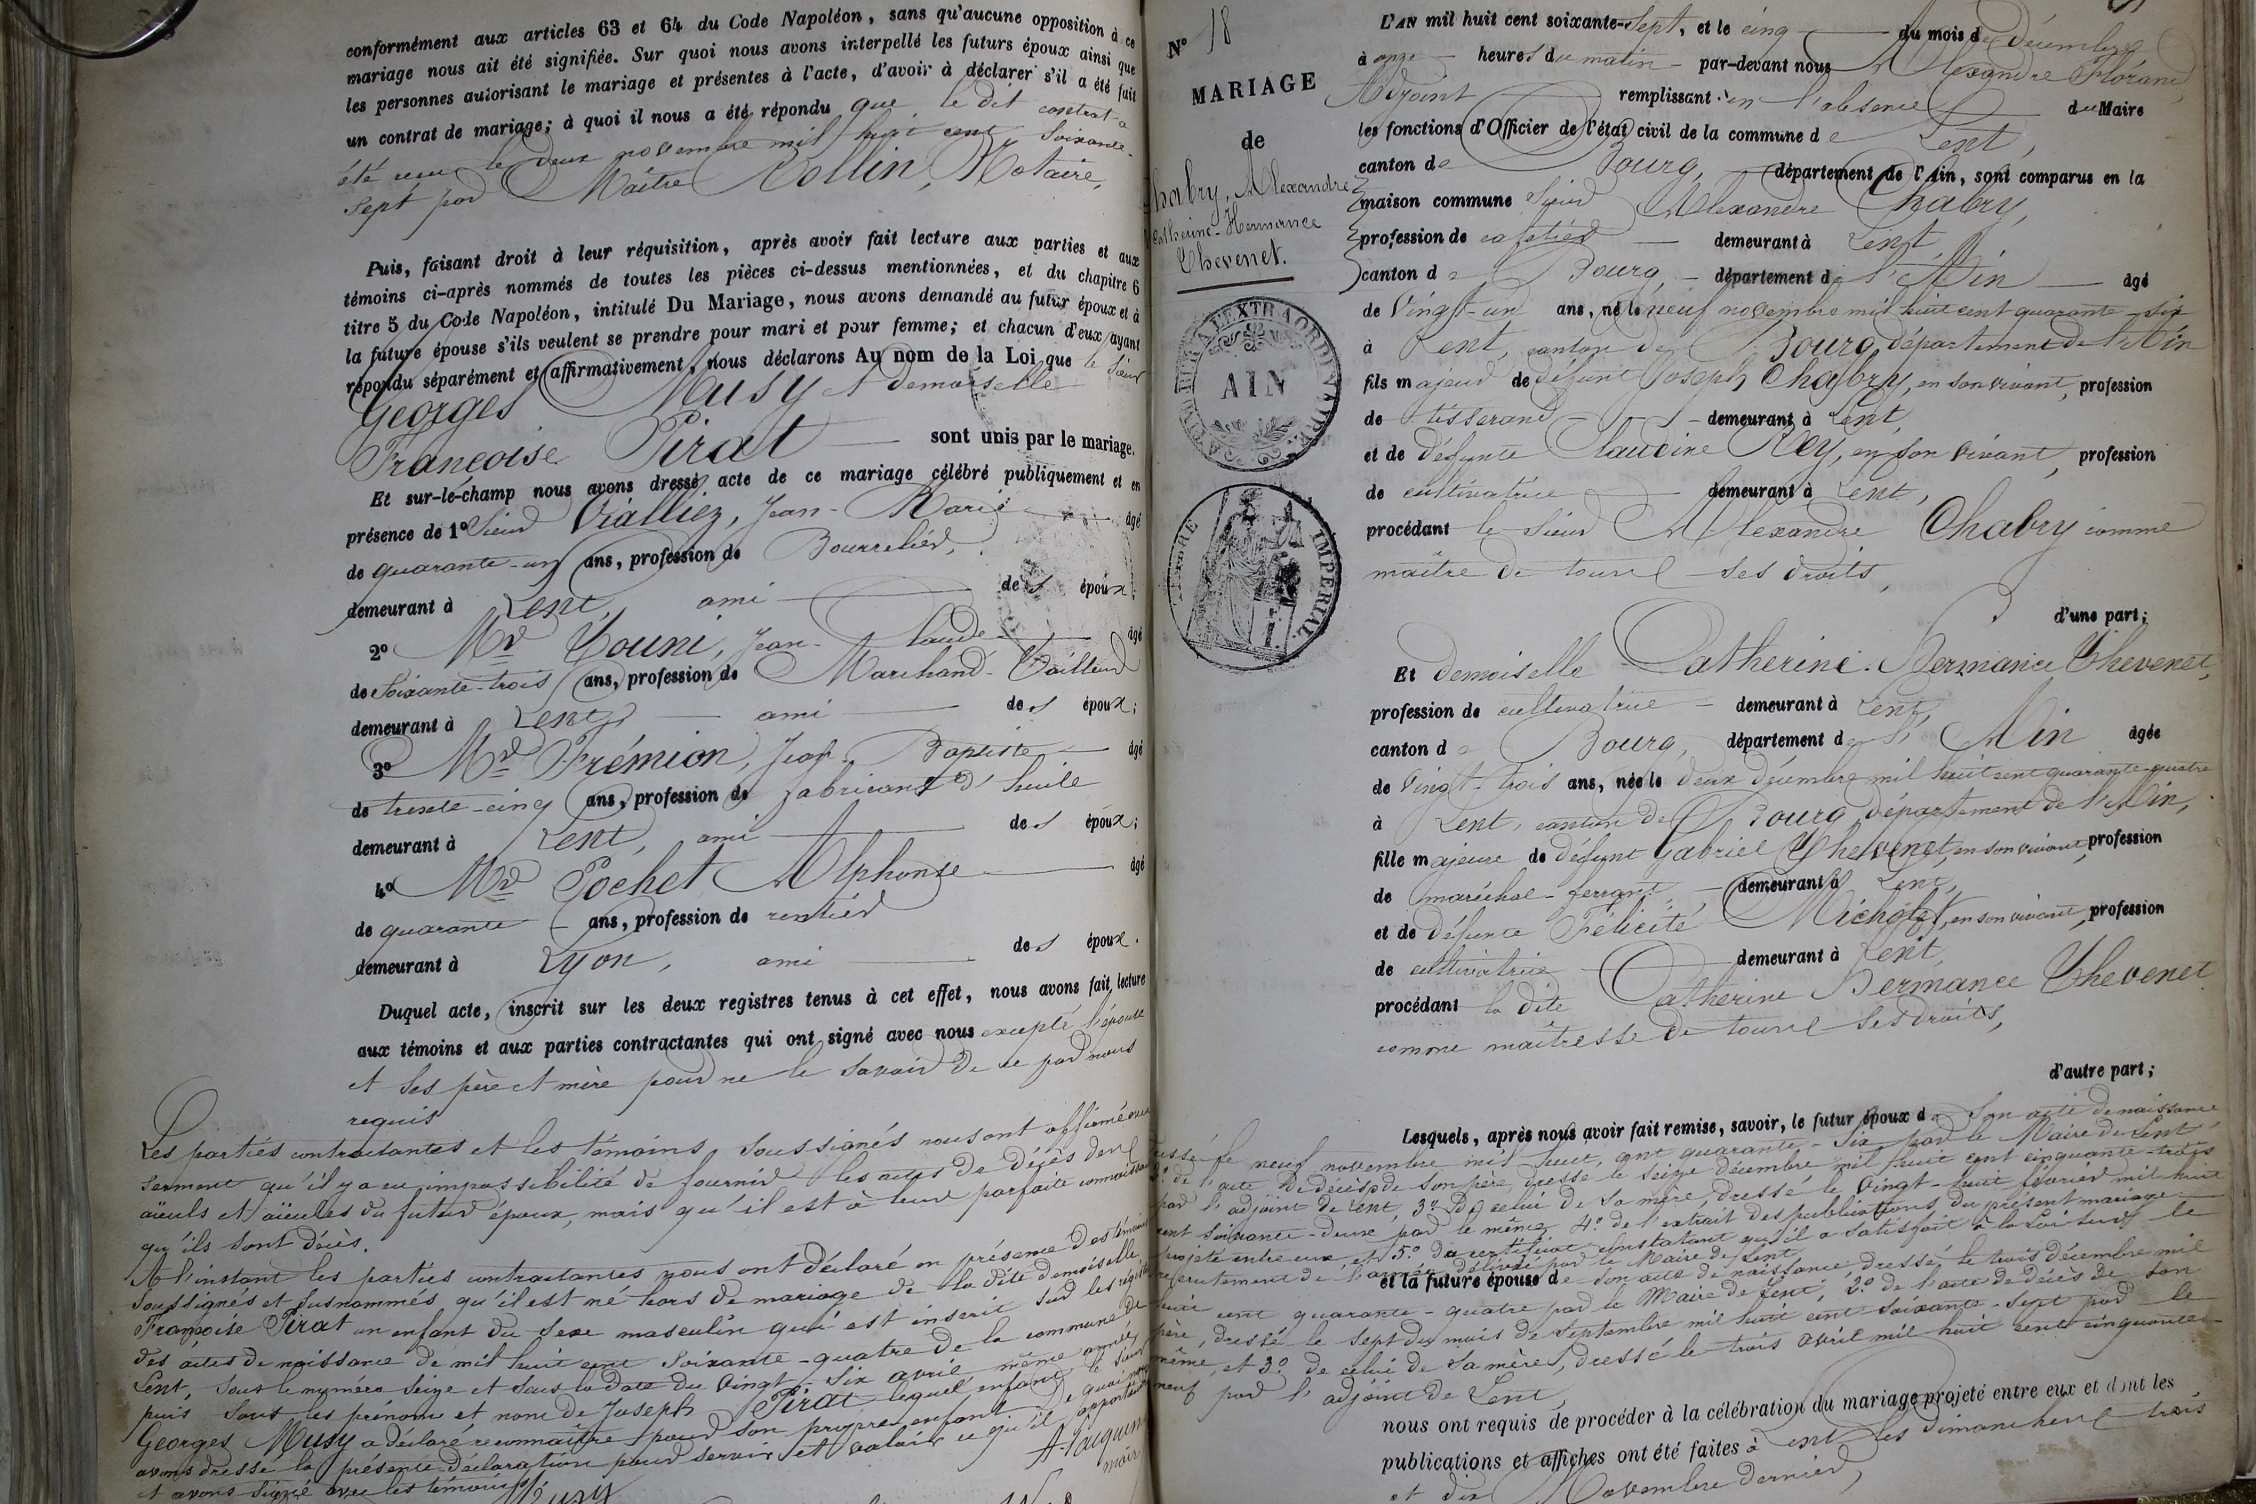 conformément aux articles 63 et 64 du Code Napoléon, sans qu'aucune opposition à ce
mariage nous ait été signifiée. Sur quoi nous avons interpellé les futurs époux ainsi que
les personnes autorisant le mariage et présentes à l'acte, d'avoir à déclarer s'il a été fait
un contrat de mariage; à quoi il nous a été répondu que le dit contrat a
été reçu le deux novembre mil huit cent soixante-
sept par Maître Rollin, Notaire,
Puis, faisant droit à leur réquisition, après avoir fait lecture aux parties et aux
témoins ci-après nommés de toutes les pièces ci-dessus mentionnées, et du chapitre 6
titre 5 du Code Napoléon, intitulé Du Mariage, nous avons demandé au futur époux et à
la future épouse s'ils veulent se prendre pour mari et pour femme; et chacun d'eux ayant
répondu séparément et affirmativement, nous déclarons Au nom de la Loi que le Sieur
Georges Musy et demoiselle
Françoise Pirat sont unis par le mariage.
Et sur-le-champ nous avons dressé acte de ce mariage célébré publiquement et en
présence de 1° Sieur Vialliez, Jean-Marie âgé
de quarante-un ans, profession de Bourrelier,
demeurant à Lent, ami des époux;
2° Mr Youni, Jean-Claude âgé
de soixante-trois ans, profession de Marchand-Tailleur
demeurant à Lent, ami des époux;
3° Mr Frémion, Jean-Baptiste âgé
de trente-cinq ans, profession de fabricant d'huile
demeurant à Lent, ami des époux;
4° Mr Pochet Alphonse âgé
de quarante ans, profession de rentier
demeurant à Lyon, ami des époux.
Duquel acte, inscrit sur les deux registres tenus à cet effet, nous avons fait lecture
aux témoins et aux parties contractantes qui ont signé avec nous excepté l'épouse
et ses père et mère pour ne le savoir de ce par nous
requis
Les parties contractantes et les témoins soussignés nous ont affirmé avec
serment qu'il y a eu impossibilité de fournir les actes de décès des
aïeuls et aïeules du futur époux, mais qu'il est à leur parfaite connaissance
qu'ils sont décès.
A l'instant les parties contractantes nous ont déclaré en présence des témoins
soussignés et susnommés qu'il est né hors de mariage de la dite demoiselle
Françoise Pirat un enfant du sexe masculin qui est inscrit sur les registres
des actes de naissance de mil huit cent soixante-quatre de la commune de
Lent, sous le numéro seize et sous la date du vingt-six avril même année
puis sous les prénoms et nom de Joseph Pirat lequel enfant le sieur
Georges Musy a déclaré reconnaître pour son propre enfant de quoi nous
avons dressé la présente déclaration pour servir et valoir ce qu'il appartiendra
et avons signé avec les témoins
maire
Musy
N° 18
MARIAGE
de
Chabry, Alexandre
Catherine-Hermance
Chevenet.
AIN
TIMBRE IMPÉRIAL
L'AN mil huit cent soixante-sept, et le cinq du mois de décembre
à onze heures du matin par-devant nous Alexandre Florand,
Adjoint remplissant en l'absence du Maire
les fonctions d'Officier de l'état civil de la commune de Lent,
canton de Bourg, département de l'Ain, sont comparus en la
maison commune Sieur Alexandre Chabry,
profession de cafetier demeurant à Lent,
canton de Bourg département de l'Ain âgé
de vingt-un ans, né le neuf novembre mil huit cent quarante-six
à Lent, canton de Bourg, département de l'Ain
fils majeur de défunt Joseph Chabry, en son vivant, profession
de tisserand demeurant à Lent,
et de défunte Claudine Rey, en son vivant, profession
de cultivatrice demeurant à Lent,
procédant le Sieur Alexandre Chabry comme
maître de tous ses droits,
d'une part;
Et demoiselle Catherine-Hermance Chevenet,
profession de cultivatrice demeurant à Lent,
canton de Bourg, département de l'Ain âgée
de vingt-trois ans, née le deux décembre mil huit cent quarante-quatre
à Lent, canton de Bourg, département de l'Ain,
fille majeure de défunt Gabriel Chevenet, en son vivant, profession
de maréchal-ferrant, demeurant à Lent,
et de défunte Félicité Micholet, en son vivant, profession
de cultivatrice demeurant à Lent,
procédant la dite Catherine Hermance Chevenet
comme maîtresse de tous ses droits,
d'autre part;
Lesquels, après nous avoir fait remise, savoir, le futur époux de son acte de naissance
dressé le neuf novembre mil huit cent quarante-six par le Maire de Lent
2° de l'acte de décès de son père, dressé le seize décembre mil huit cent cinquante-trois
par l'adjoint de Lent, 3° de celui de sa mère, dressé le vingt-huit février mil huit
cent soixante-deux par le même, 4° de l'extrait des publications du présent mariage
projeté entre eux et 5° du certificat constatant qu'il a satisfait à la loi sur le
recrutement de l'armée délivré par le Maire de Lent
et la future épouse de son acte de naissance dressé le trois décembre mil
huit cent quarante-quatre par le Maire de Lent, 2° de l'acte de décès de son
père, dressé le sept du mois de septembre mil huit cent soixante-sept par le
même, et 3° de celui de sa mère, dressé le trois avril mil huit cent cinquante-
neuf par l'adjoint de Lent,
nous ont requis de procéder à la célébration du mariage projeté entre eux et dont les
publications et affiches ont été faites à Lent les dimanches trois
et dix Novembre dernier,